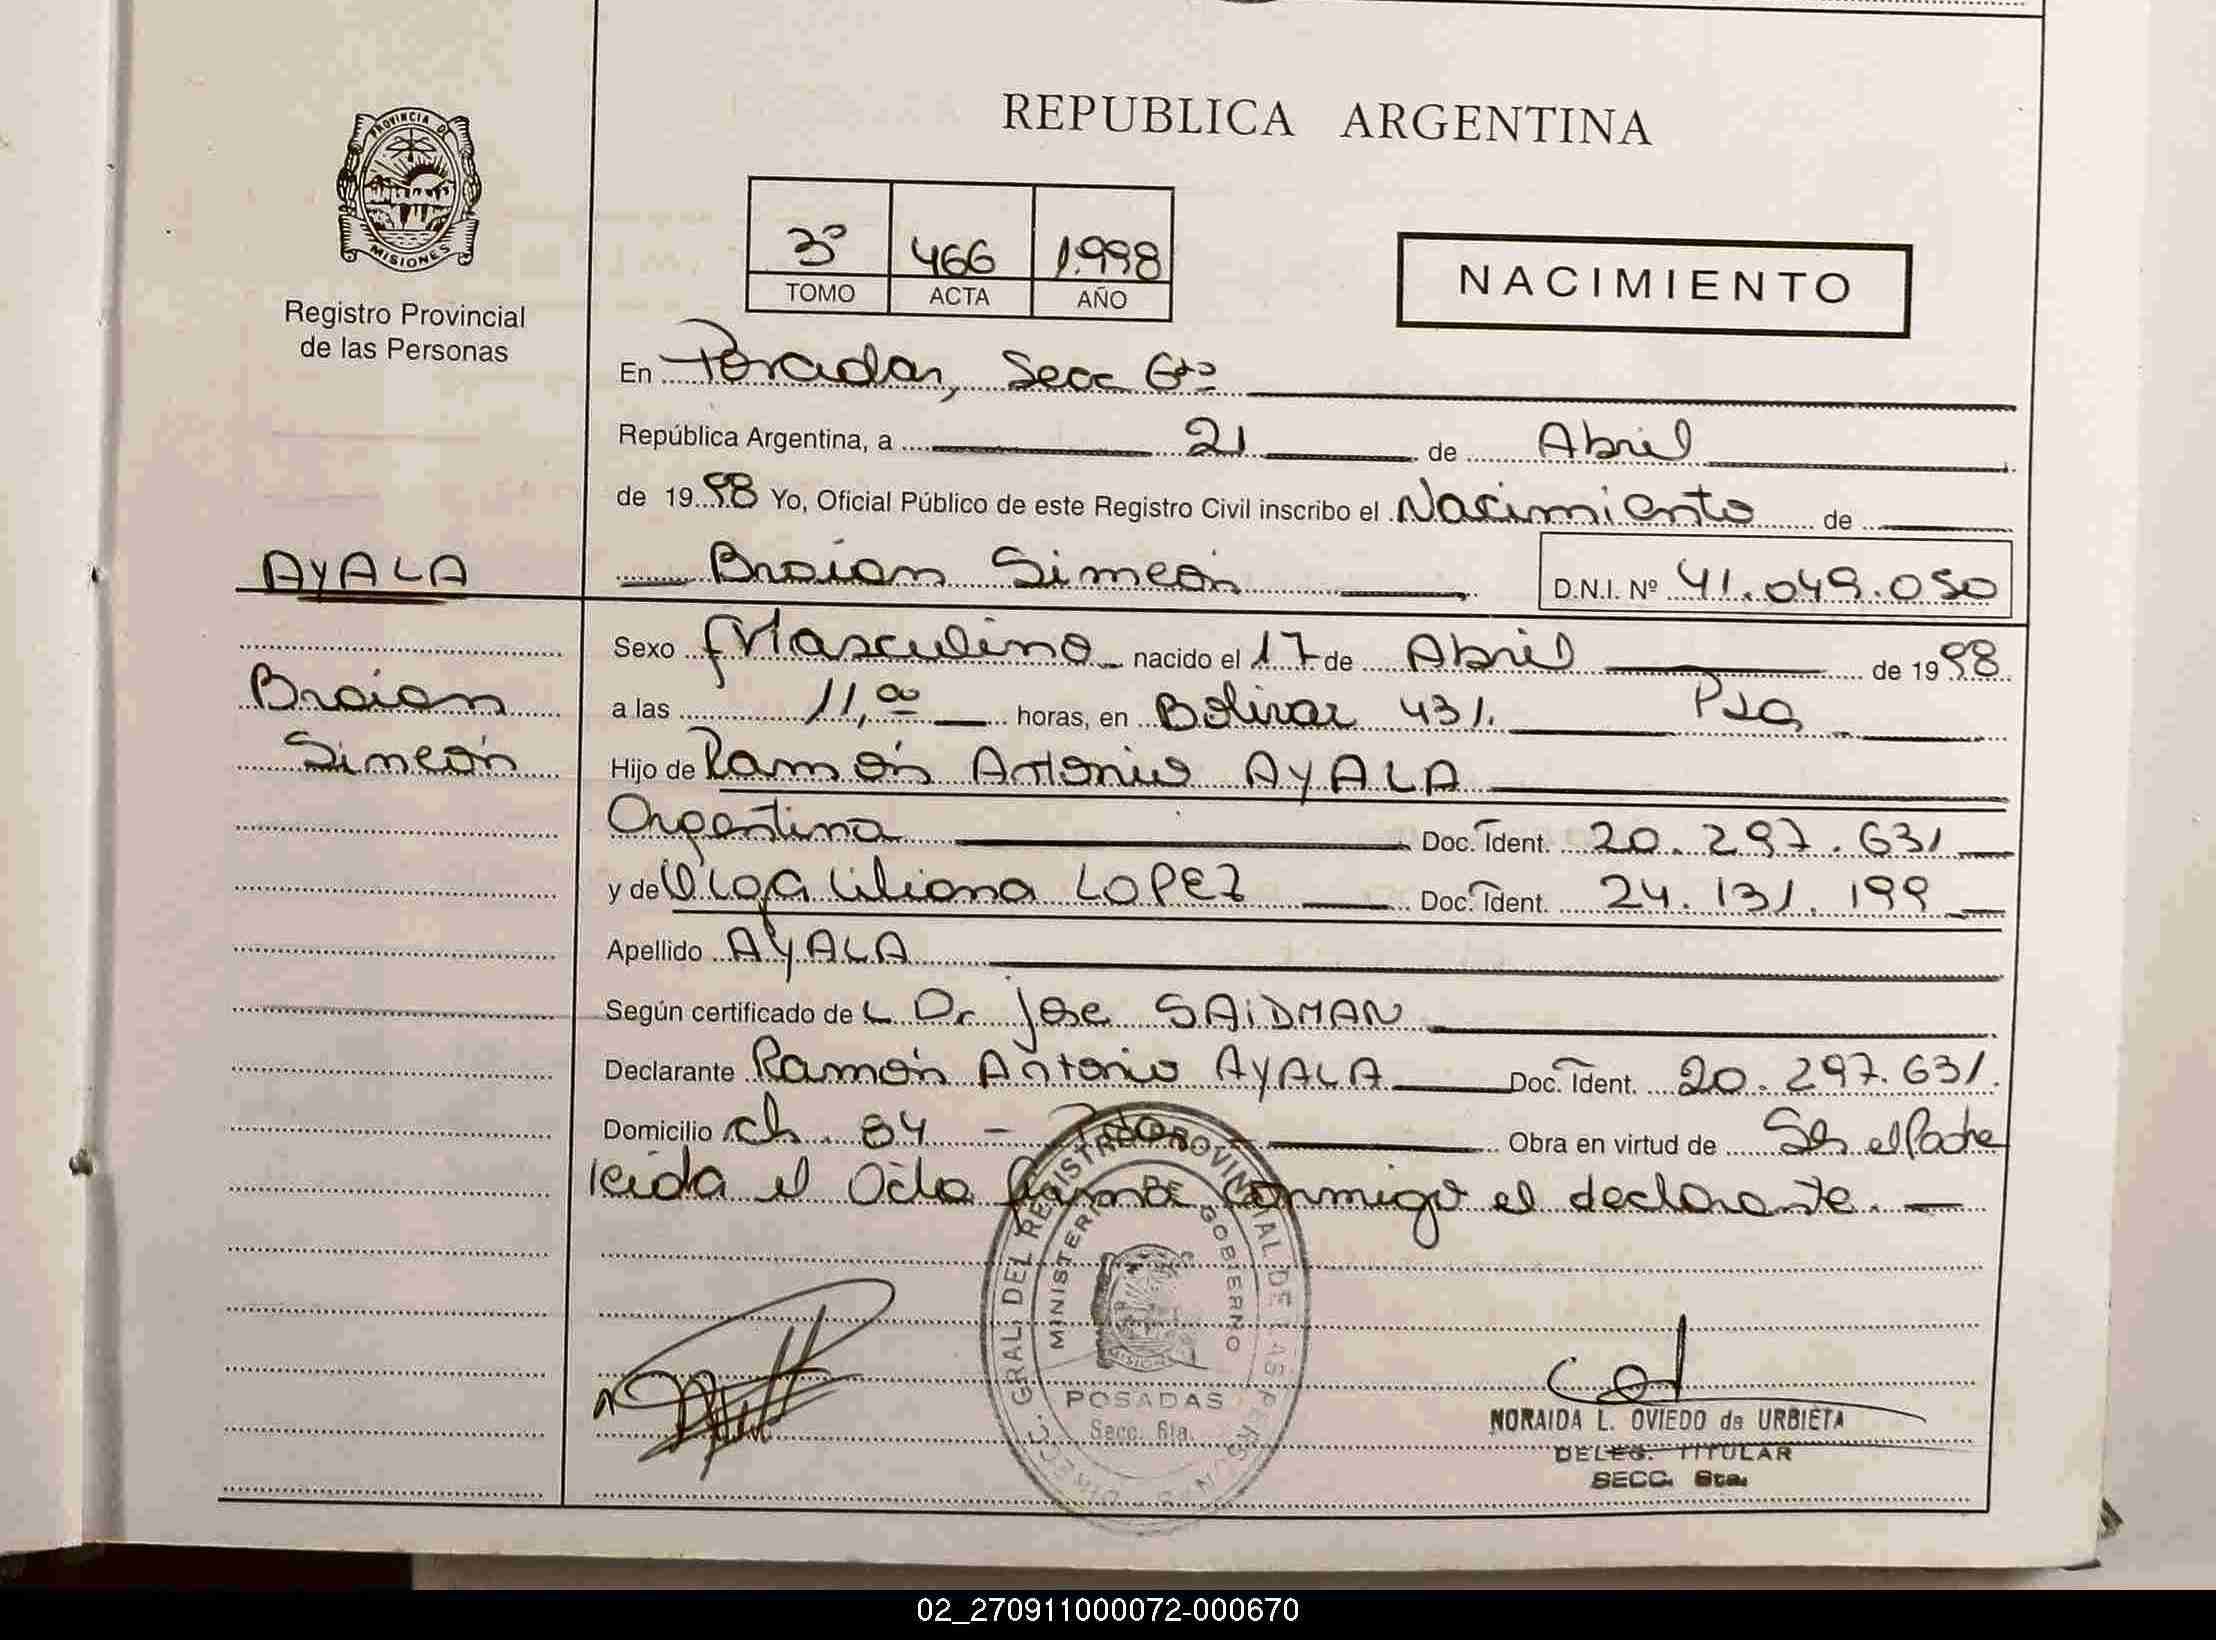 REPUBLICA ARGENTINA
PROVINCIA DE
MISIONES
Registro Provincial
de las Personas
3º 466 1.998
TOMO ACTA AÑO
NACIMIENTO
En Posadas, Secc 6ta
República Argentina, a 21 de Abril
de 1998 Yo, Oficial Público de este Registro Civil inscribo el Nacimiento de
AYALA
Braian Simeón D.N.I. Nº 41.049.050
Sexo Masculino nacido el 17 de Abril de 1998
Braian
a las 11,00 horas, en Bolivar 431.
Simeón
Hijo de Ramón Antonio AYALA
Argentina Doc. Ident. 20.297.631
y de Olga Liliana LOPEZ Doc. Ident. 24.131.199
Apellido AYALA
Según certificado de L Dr. Jose SAIDMAN
Declarante Ramón Antonio AYALA Doc. Ident. 20.297.631.
Domicilio ch. 84 - Obra en virtud de Ser el Padre
leida el Acta firma conmigo el declarante.
DIREC. GRAL. DEL REGISTRO PROVINCIAL DE LAS PERSONAS
MINISTERIO DE GOBIERNO
MISIONES
POSADAS
Secc. 6ta.
NORAIDA L. OVIEDO de URBIETA
DELEG. TITULAR
SECC. 6ta.
02_270911000072-000670